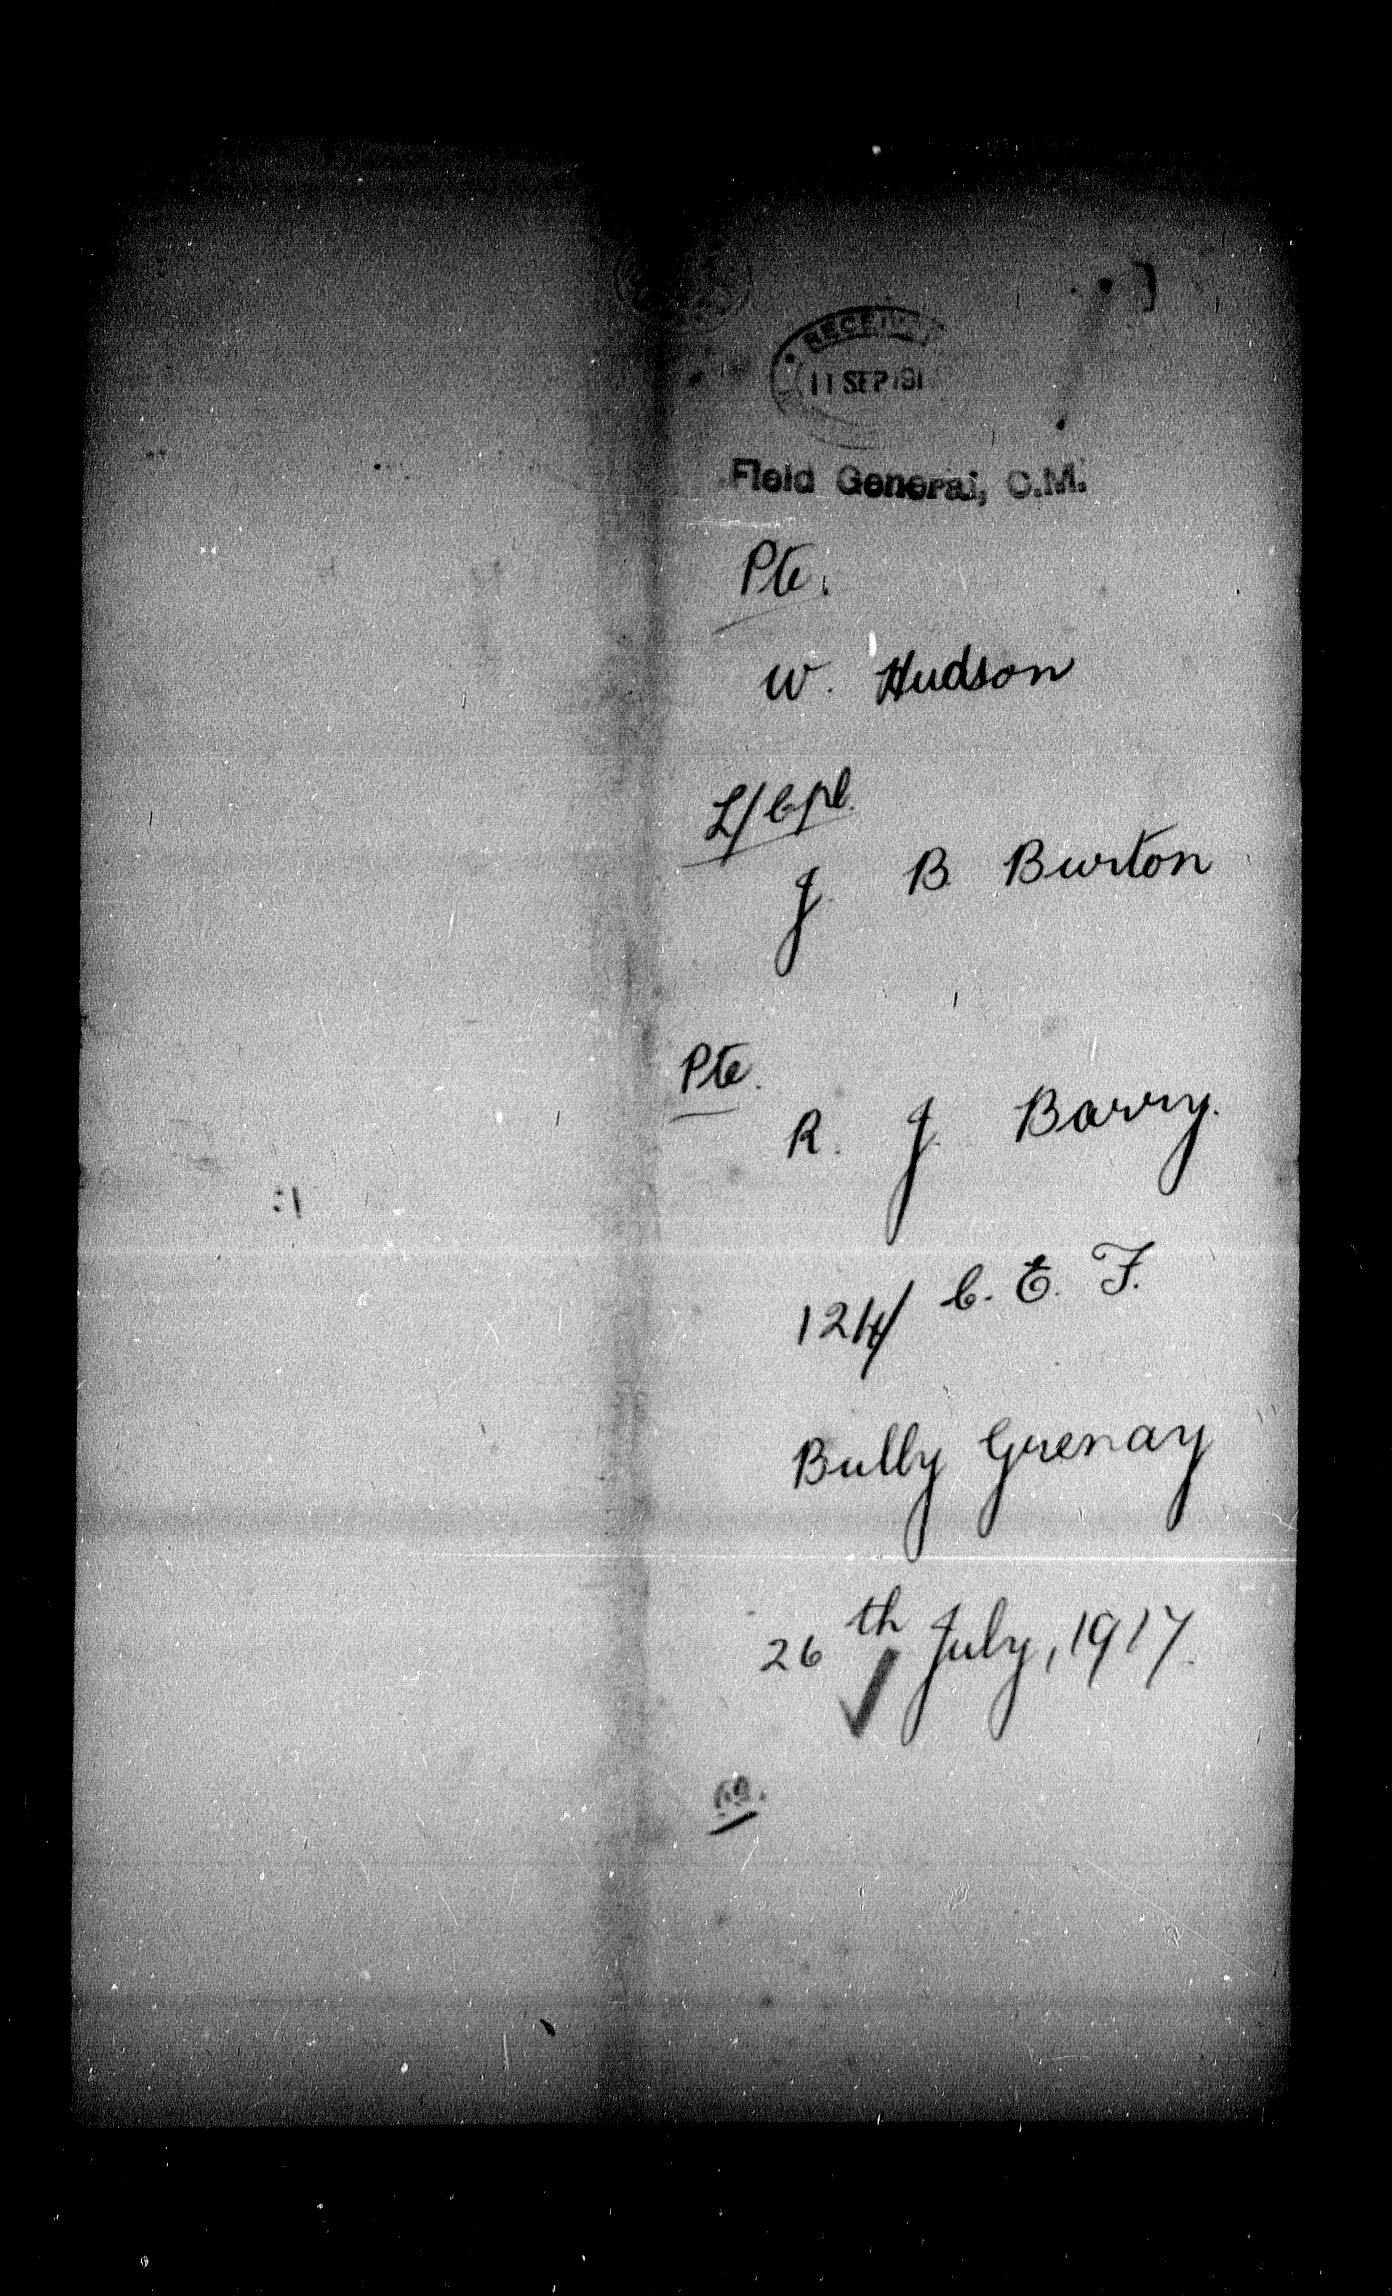 RECEIVED
11 SEP 191
Field General, C.M.
Pte.
W. Hudson
L/Cpl.
J. B. Burton
Pte.
R. J. Barry.
124/ C. E. F.
Bully Grenay
26th July, 1917.